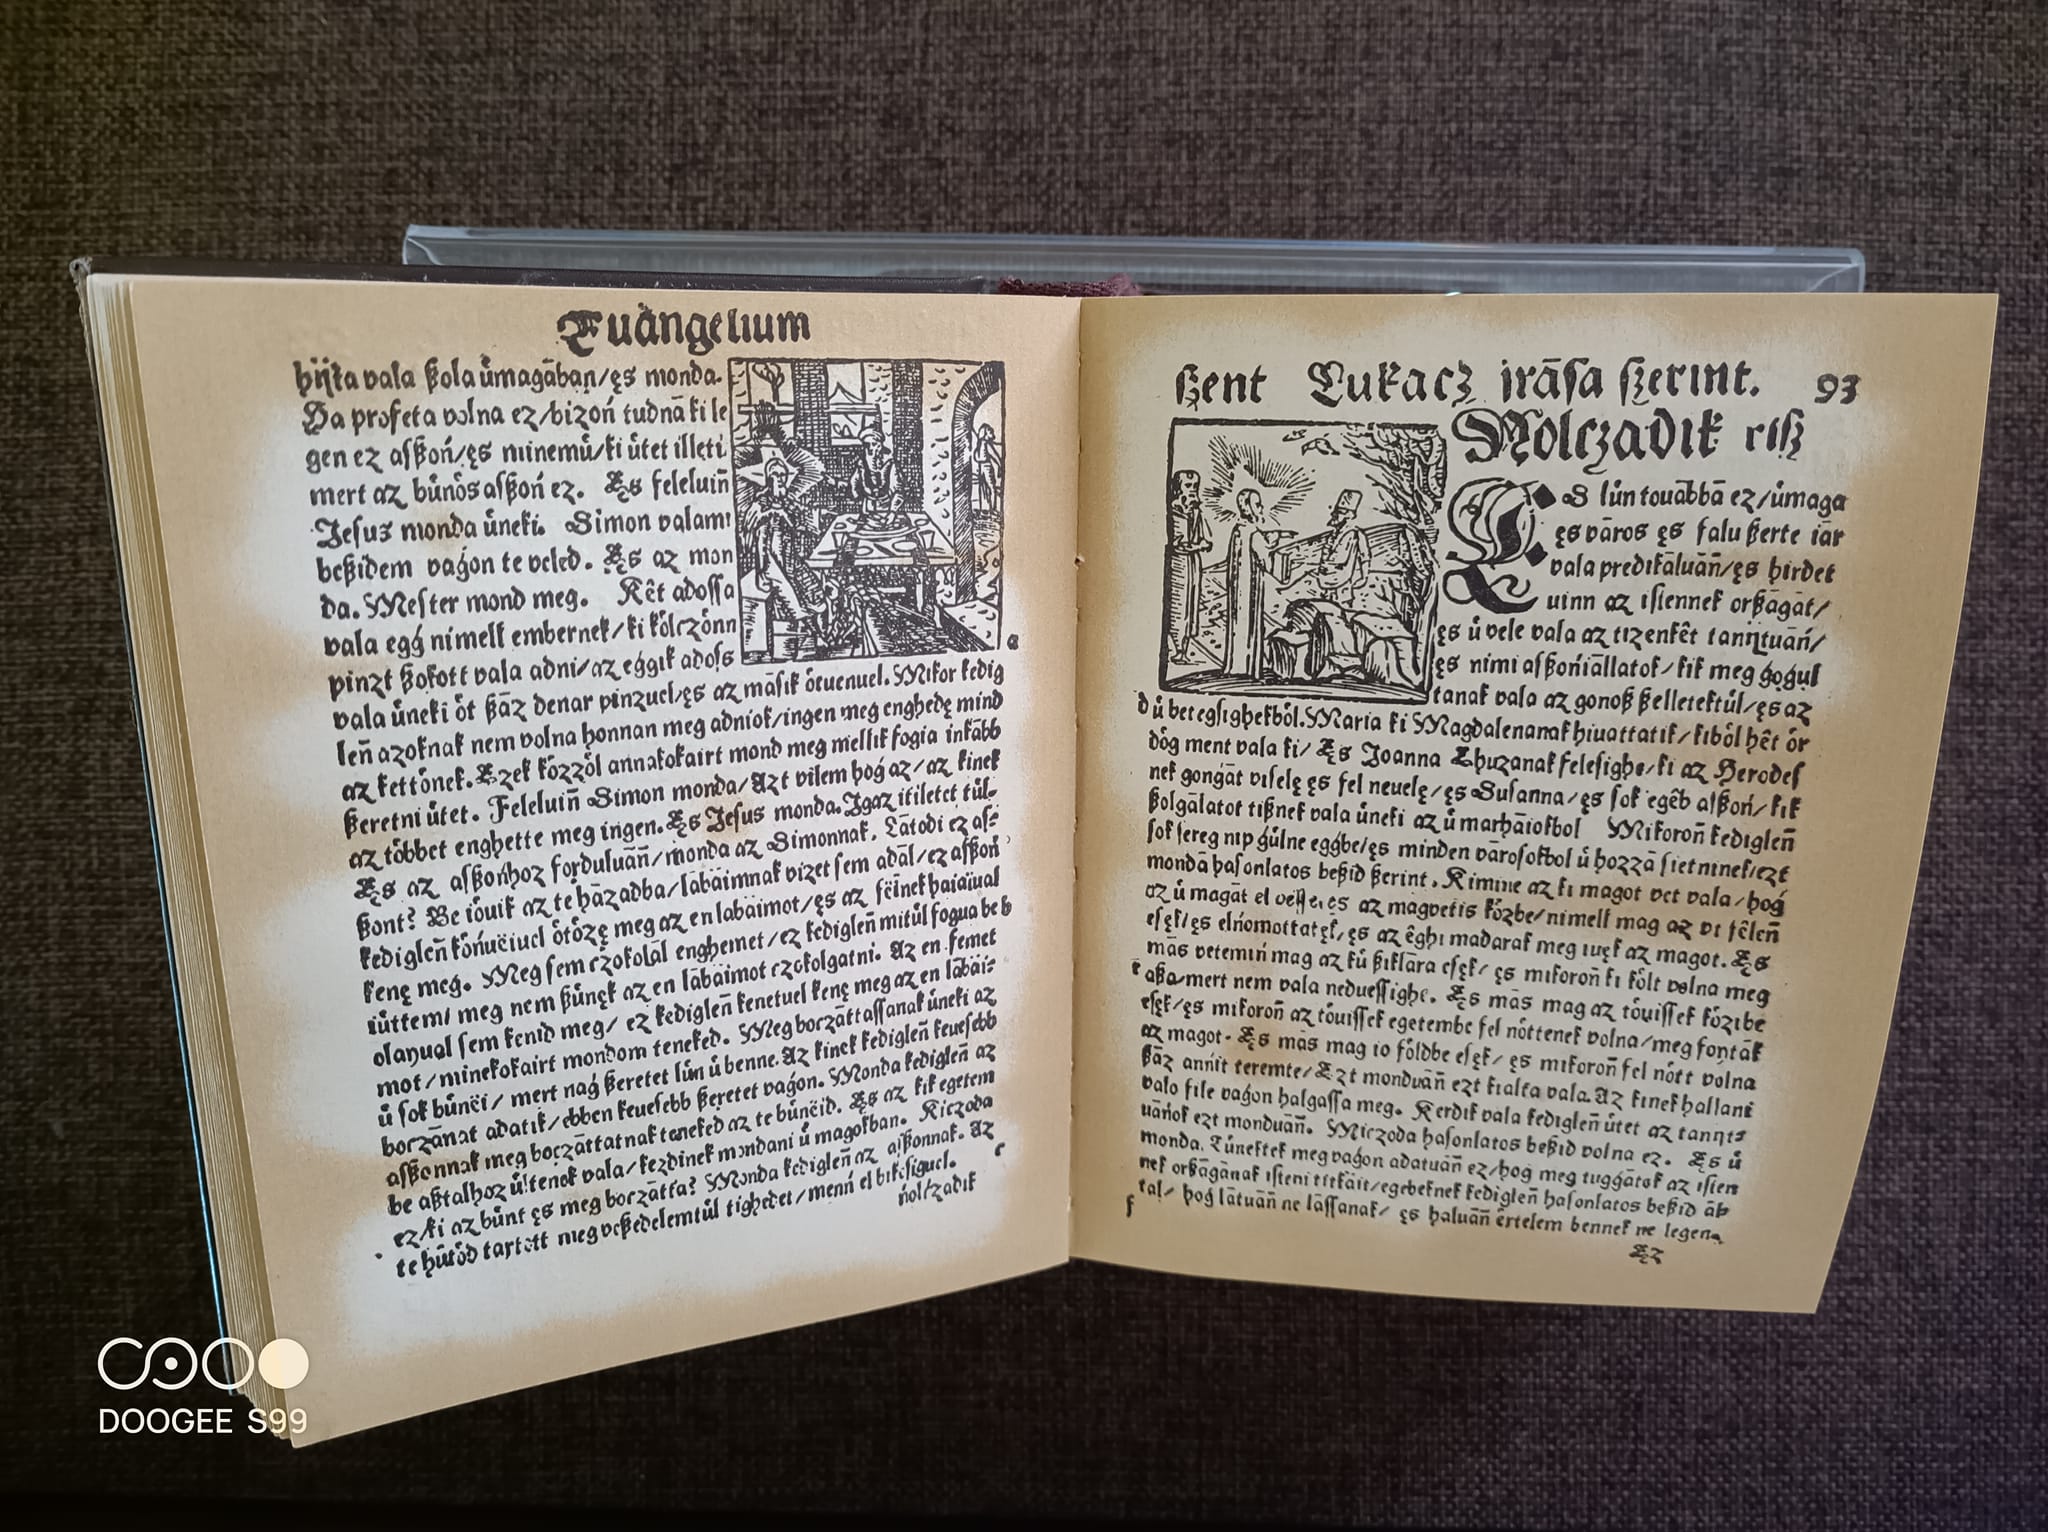 Euāngelium
hijta vala ßola ůmagāban/ęs monda.
Ha profeta volna ez/bizoń tudnā ki le
gen ez aſßoń/ęs minemů/ki ůtet illeti
mert az bůnos aſßoń ez. Ęs feleluin̄
Jeſus monda ůneki. Simon valami
beßidem vaǵon te veled. Ęs az mon
da. Meſter mond meg. Kêt adoſſa
vala egǵ nimell embernek/ki kỏlczỏnn
pinzt ßokott vala adni/az eǵǵik adoſs
vala ůneki ỏt ßāz denar pinzuel/ęs az māſik ỏtuenuel. Mikor kedig
len̄ azoknak nem volna honnan meg adniok/ingen meg enghedę mind
az kettỏnek. Ezek kỏzzỏl annakokairt mond meg mellik fogia inkābb
ßeretni ůtet. Feleluin̄ Simon monda/Azt vilem hoǵ az/az kinek
az tỏbbet enghette meg ingen. Ęs Jeſus monda. Igaz itiletet tůl-
Ęs az aſßońhoz forduluān̄/monda az Simonnak. Lātodi ez aſ-
ßont? Be iỏuik az te hāzadba/lābāimnak vizet ſem adāl/ez aſßoń
kediglen̄ kỏńuẽiuel ỏtỏzę meg az en labāimot/ęs az fẽinek haiāiual
kenę meg. Meg ſem czokolāl enghemet/ez kediglen̄ mitůl fogua be b
iůttem/ meg nem ßůnęk az en lābāimot czokolgatni. Az en femet
olayual ſem kenid meg/ ez kediglen̄ kenetuel kenę meg az en lābāi-
mot/minekokairt mondom teneked. Meg borzāttaſſanak ůneki az
ů ſok bůnẽi/ mert naǵ ßeretet lůn ů benne. Az kinek kediglen̄ keueſebb
borzānat adatik/ebben keueſebb ßeretet vaǵon. Monda kediglen̄ az
aſßonnak meg boczāttatnak teneked az te bůnẽid. Ęs az kik egetem
be aßtalhoz ůltenek vala/kezdinek mondani ů magokban. Kiczoda
ez/ki az bůnt ęs meg borzātta? Monda kediglen̄ az aſßonnak. Az
te hůtỏd tartott meg veßedelemtůl tighedet/menń el bikeſiguel.
a
c
ńolczadik
ſzent Lukacz irāſa ſzerint. 93
Nolczadik riſz
ES lůn touābbā ez/ůmaga
ęs vāros ęs falu ßerte iār
vala predikāluān̄/ęs hirdet
uinn az iſtennek orßāgāt/
ęs ů vele vala az tizenkêt tanijtuāń/
ęs nimi aſßońiāllatok/kik meg ǵoǵul
tanak vala az gonoß ßelletektůl/ęs az
d ů betegſighekbỏl. Maria ki Magdalenanak hiuattatik/kibỏl hêt ỏr
dỏg ment vala ki/ Ęs Joanna Chuzanak feleſighe/ki az Herodeſ
nek gongāt viſelę ęs fel neuelę/ęs Suſanna/ęs ſok egêb aſßoń/kik
ßolgālatot tißnek vala ůneki az ů marhāiokbol Mikoron̄ kediglen̄
ſok ſereg nip ǵůlne eggbe/ęs minden vāroſokbol ů hozzā ſietninek/ezt
mondā haſonlatos beßid ßerint. Kimine az ki magot vet vala/hoǵ
az ů magāt el ęs az magvetis kỏzbe/nimell mag az vt fêlen̄
eſęk/ęs elńomottatęk/ęs az êghi madarak meg iuęk az magot. Ęs
mās vetemiń mag az ků ßiklāra eſęk/ ęs mikoron̄ ki kỏlt volna meg
e aßa/mert nem vala nedueſſighe. Ęs mās mag az tỏuiſſek kỏzibe
eſęk/ęs mikoron̄ az tỏuiſſek egetembe fel nỏttenek volna/meg fontāk
az magot. Ęs mās mag io fỏldbe eſęk/ ęs mikoron̄ fel nỏtt vỏlna
ßāz annit teremte/Ezt monduān̄ ezt kialta vala. Az kinek hallani
valo file vaǵon halgaſſa meg. Kerdik vala kediglen̄ ůtet az tanijt-
uāńok ezt monduān̄. Miczoda haſonlatos beßid volna ez. Ęs ů
monda. Tůnektek meg vaǵon adatuān̄ ez/hoǵ meg tuǵǵātok az iſten
nek orßāgānak iſteni titkāit/egebeknek kediglen̄ haſonlatos beßid āb
tal/ hoǵ lātuān̄ ne lāſſanak/ ęs haluān̄ êrtelem bennek ne legen.
f
Ęz
DOOGEE S99